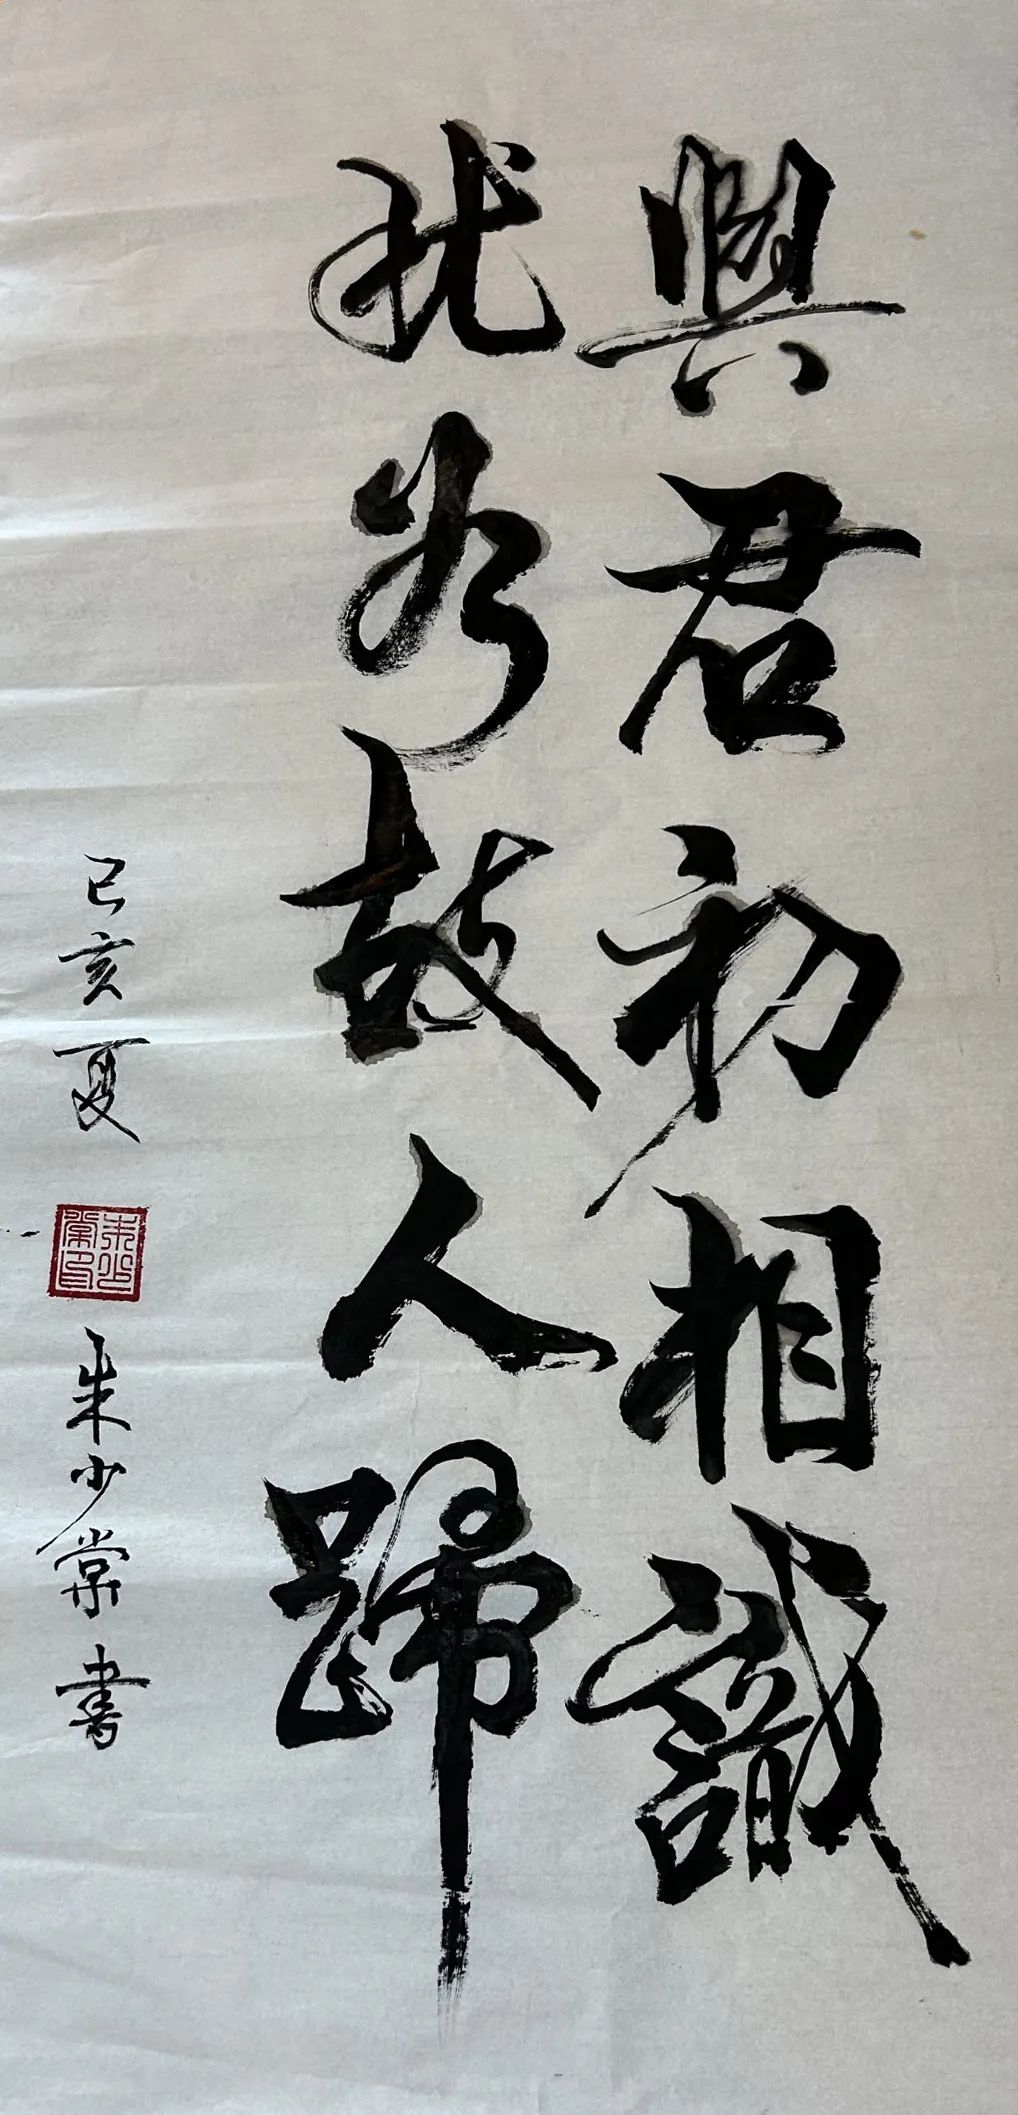 與君初相識
犹如故人歸
己亥夏
朱少棠印
朱少棠書